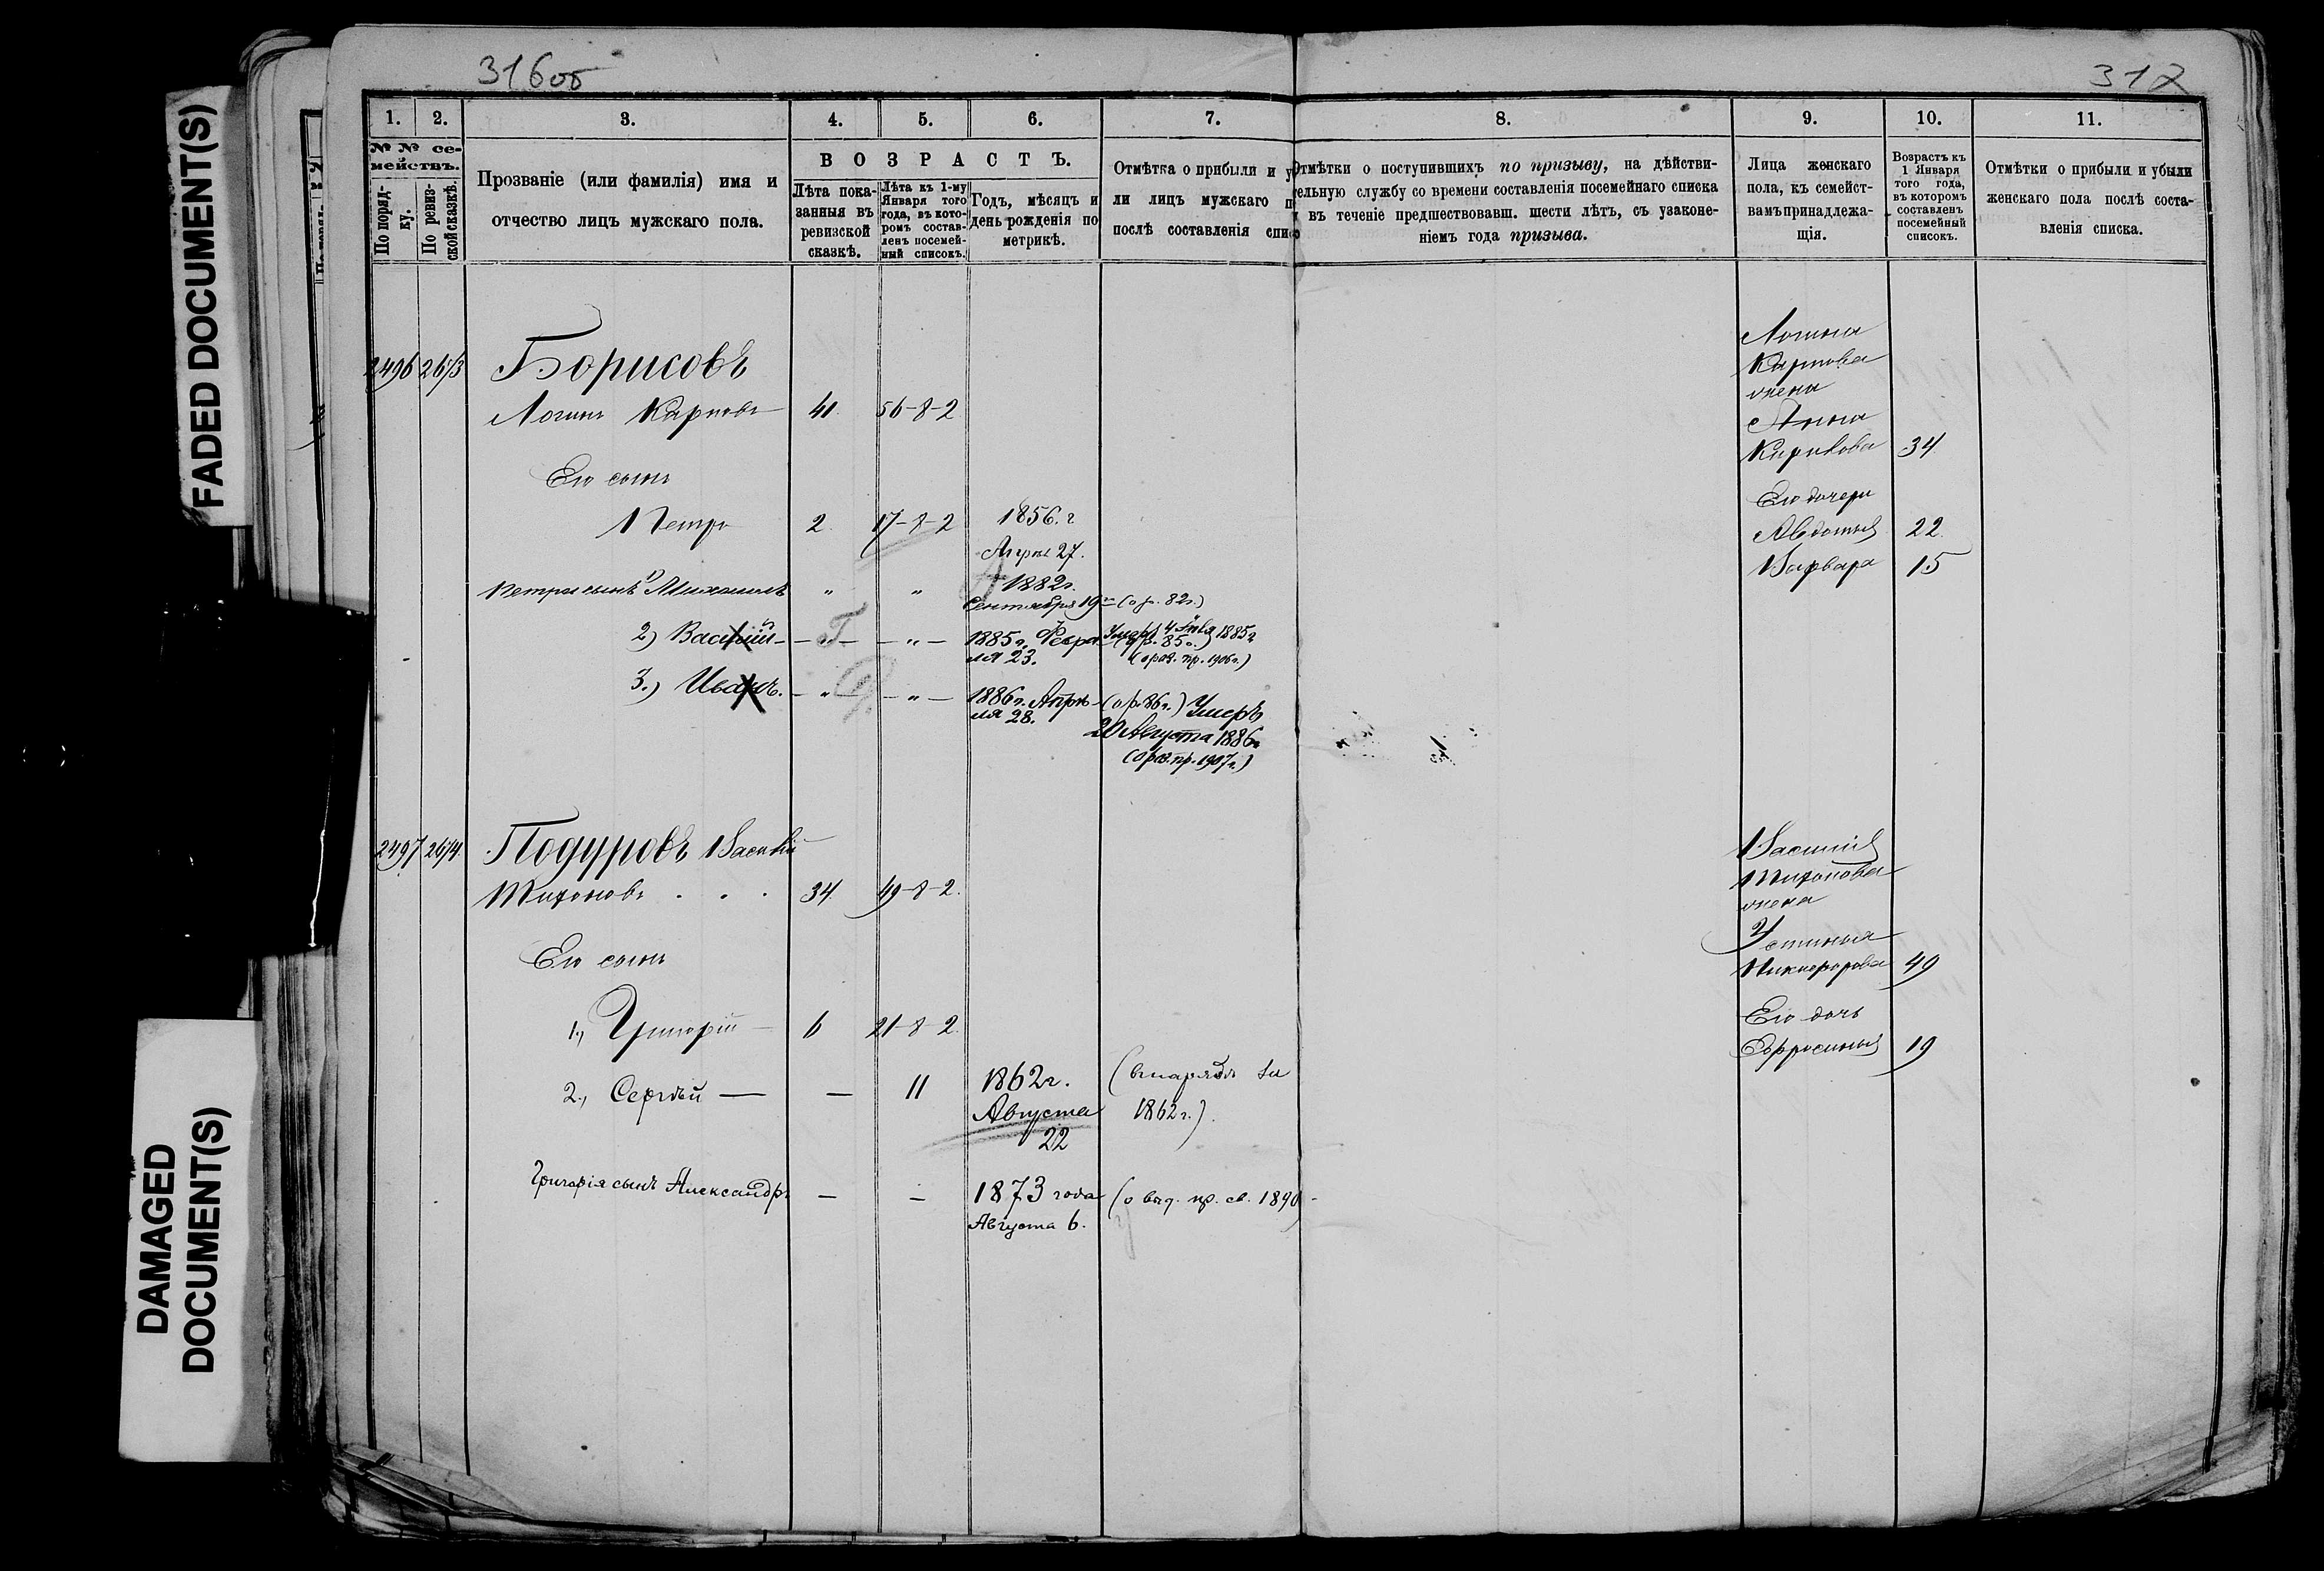 FADED DOCUMENT(S)
DAMAGED
DOCUMENT(S)
316об
317
1.
2.
3.
4.
5.
6.
7.
8.
9.
10.
11.
№ № се-
мействъ.
По поряд-
ку.
По ревиз-
ской сказкѣ.
Прозваніе (или фамилія) имя и
отчество лицъ мужскаго пола.
В О З Р А С Т Ъ.
Лѣта пока-
занныя въ
ревизской
сказкѣ.
Лѣта къ 1-му
Января того
года, въ кото-
ромъ состав-
ленъ посемей-
ный списокъ.
Годъ, мѣсяцъ и
день рожденія по
метрикѣ.
Отмѣтка о прибыли и у
ли лицъ мужскаго п
послѣ составленія спис
Отмѣтки о поступившихъ по призыву, на дѣйстви-
тельную службу со времени составленія посемейнаго списка
въ теченіе предшествовавш. шести лѣтъ, съ узаконе-
ніемъ года призыва.
Лица женскаго
пола, къ семейст-
вамъ принадлежа-
щія.
Возрастъ къ
1 Января
того года,
въ которомъ
составленъ
посемейный
списокъ.
Отмѣтки о прибыли и убыли
женскаго пола послѣ соста-
вленія списка.
2496 26/3 Борисовъ
Логинъ Карповъ 41. 56-8-2
Его сынъ
Петръ 2. 17-8-2 1856. г
Апрѣл 27.
Петра сынъ 1) Михаилъ " " 1882г.
Сентября 19го (о р. 82г.)
2) Василій - - " - - " - 1885г. Февра-
ля 23.
Умеръ 4 Іюля 1885г.
(о р. 85г.)
(о раз. пр. 1906г.)
3.) Иванъ. - " - - " - 1886г. Апрѣ-
ля 28.
(о р. 86г.) Умеръ
20 Августа 1886г
(о раз. пр. 1907г.)
Логина
Карпова
жена
Анна
Карпова 34.
Его дочери
Авдотья 22.
Варвара 15
2497 26/4. Подуровъ Василій
Тихоновъ . . . 34. 49-8-2.
Его сынъ
1., Григорій - 6 21-8-2.
2., Сергѣй — — 11 1862г.
Августа
22
1862г.).
Григорія сынъ Александръ — - 1873 года
Августа 6.
(о выд. пр. св. 1890)
Василія
Тихонова
жена
Устинья
Никифорова 49
Его дочь
Ефросинья 19